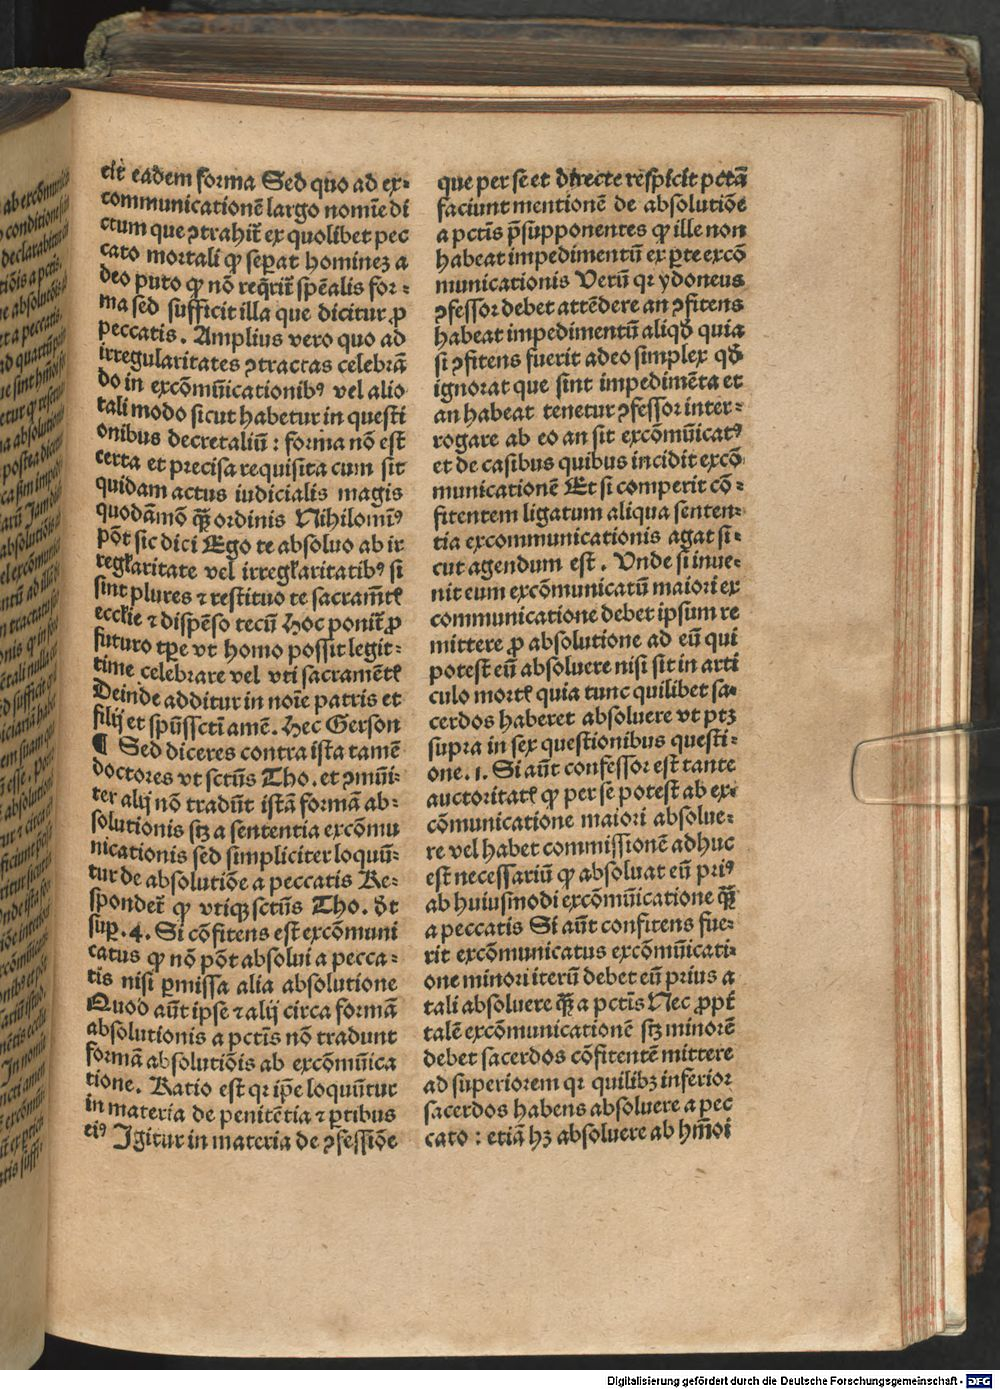 eadem forma Sed quo ad ex⸗
communicationē largo nomīe di
ctum que ꝯtrahit̄ ex quolibet pec
cato mortali ꝙ seꝑat hominez a
deo puto ꝙ nō req̄rit̄ spēalis for⸗
ma sed sufficit illa que dicitur ꝓ
peccatis. Amplius vero quo ad
irregularitates ꝯtractas celebrā
do in excōm̄icationibꝰ vel alio
tali modo sicut habetur in questi
onibus decretaliū : forma nō est
certa et precisa requisita cum sit
quidam actus iudicialis magis
quodāmō ꝙ̄ ordinis Nihilomīꝰ
pōt sic dici Ego te absoluo ab ir
regl̄aritate vel irregl̄aritatibꝰ si
sint plures ⁊ restituo te sacram̄tꝭ
eccl̄ie ⁊ dispēso tecū Hoc ponit̄ ꝓ
futuro tꝑe vt homo possit legit⸗
time celebrare vel vti sacramētꝭ
Deinde additur in noīe patris et
filij et spūssct̄i amē. Hec Gerson
¶ Sed diceres contra ista tamē
doctores vt sctūs Tho. et ꝯmūi⸗
ter alij nō tradūt istā formā ab⸗
solutionis sꝫ a sententia excōmu
nicationis sed simpliciter loquū⸗
tur de absolutiōe a peccatis Re⸗
sponder̄ ꝙ vtiqꝫ sctūs Tho. d̄t
suꝑ. 4. Si cōfitens est excōmuni
catus ꝙ nō pōt absolui a pecca⸗
tis nisi ꝑmissa alia absolutione
Quod aūt ipse ⁊ alij circa formā
absolutionis a pctīs nō tradunt
formā absolutiōis ab excōm̄ica
tione. Ratio est qr ip̄e loquūtur
in materia de penitētia ⁊ ꝑtibus
eiꝰ Igitur in materia de ꝯfessiōe
que per se et directe respicit pctā
faciunt mentionē de absolutiōe
a pctīs p̄supponentes ꝙ ille non
habeat impedimentū ex ꝑte excō
municationis Verū qr ydoneus
ꝯfessor debet attēdere an ꝯfitens
habeat impedimentū aliqd̄ quia
si ꝯfitens fuerit adeo simplex qd̄
ignorat que sint impedimēta et
an habeat tenetur ꝯfessor inter⸗
rogare ab eo an sit excōmūicatꝰ
et de casibus quibus incidit excō
municationē Et si comperit cō⸗
fitentem ligatum aliqua senten⸗
tia excommunicationis agat si⸗
cut agendum est. Vnde si inue⸗
nit eum excōmunicatū maiori ex
communicatione debet ipsum re
mittere ꝓ absolutione ad eū qui
potest eū absoluere nisi sit in arti
culo mortꝭ quia tunc quilibet sa⸗
cerdos haberet absoluere vt ptꝫ
supra in sex questionibus questi⸗
one. 1. Si aūt confessor est tante
auctoritatꝭ ꝙ per se potest ab ex⸗
cōmunicatione maiori absolue⸗
re vel habet commissionē adhuc
est necessariū ꝙ absoluat eū priꝰ
ab huiusmodi excōm̄icatione ꝙ̄
a peccatis Si aūt confitens fue⸗
rit excōmunicatus excōm̄icati⸗
one minori iterū debet eū prius a
tali absoluere ꝙ̄ a pctīs Nec ꝓpt̄
talē excōmunicationē sꝫ minorē
debet sacerdos cōfitentē mittere
ad superiorem qr quilibꝫ inferior
sacerdos habens absoluere a pec
cato : etiā hꝫ absoluere ab hm̄oi
Digitalisierung gefördert durch die Deutsche Forschungsgemeinschaft - DFG